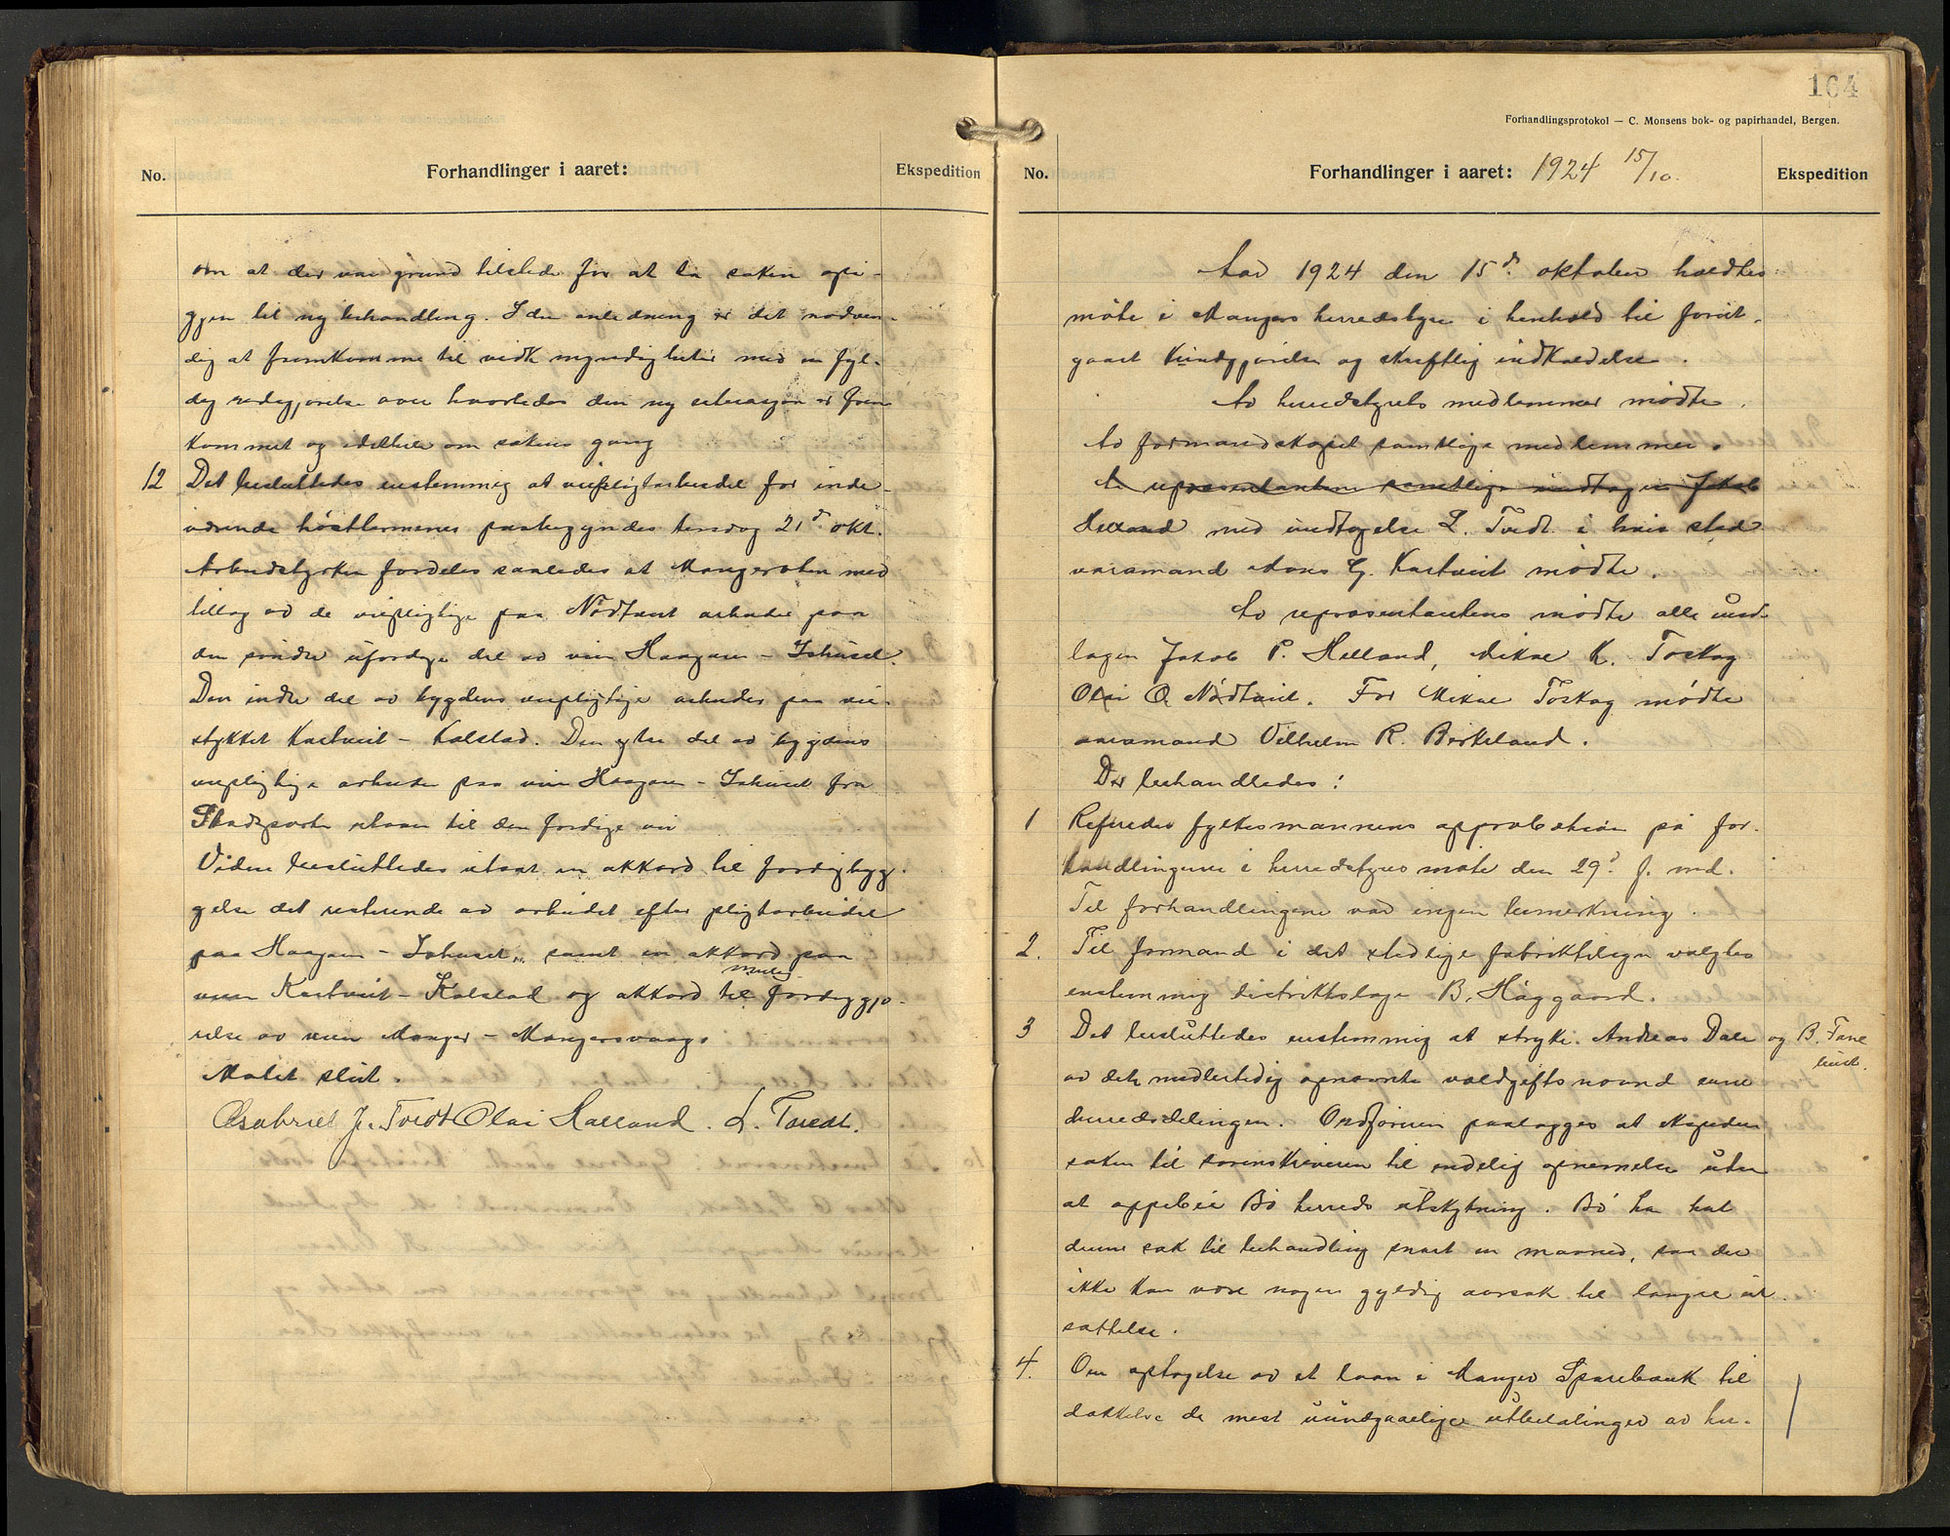 No.
Forhandlinger i aaret:
Ekspedition
om at der var grund tilstede for at ta saken opi-
gjen til ny behandling. I den anledning er det nødven-
dig at fremkomme til vedk myndigheter med en fyl-
dig redegjørelse over hvorledes den ny situasjon er frem
kommet og idethele om sakens gang
12 Det besluttedes enstemmig at veipligtarbeidet for inde-
værende høstterminer paabegyndes tirsdag 21de okt.
Arbeidstyrken fordeles saaledes at Mangeroten med
tillæg av de veipligtige paa Nødtveit arbeider paa
den søndre ufærdige del av veien Haagaen – Ishuset.
Den indre del av bygdens veipligtige arbeider paa vei-
stykket Kartveit – Kalstad. Den ytre del av bygdens
veipligtige arbeider paa veien Haagaen – Ishuset fra
til den færdige vei
Videre besluttedes utsat en akkord til færdigbyg-
gelse det resterende av arbeidet efter pligtarbeidet
paa Haagaen – Ishuset, samt en akkord paa
veien Kartveit – Kalstad og mulig akkord til færdiggjø-
relse av veien Manger – Mangersvaag.
Møtet slut.
Gabriel J. Tvedt Olai Halland. L. Tvedt.
164
Forhandlingsprotokol — C. Monsens bok- og papirhandel, Bergen.
No.
Forhandlinger i aaret: 1924 15/10.
Ekspedition
Aar 1924 den 15de oktober holdtes
møte i Mangers herredstyre i henhold til forut-
gaaet kundgjørelse og skriftlig indkaldelse.
Av herredstyrets medlemmer mødte.
Av formandskapet samtlige medlemmer.
Av repræsentantene samtlige undtagen Jakob
Helland med undtagelse L. Tvedt i hvis sted
varamand Mons G. Kartveit mødte.
Av repræsentantene mødte alle und-
tagen Jakob P. Helland, Mikal K. Toskag
Olai O. Nødtveit. For Mikal Toskag mødte
varamand Vilhelm R. Birkeland.
Der behandledes:
1 Refereder fylkesmannens approbation på for-
handlingene i herredstyres møte den 29de f. md.
Til forhandlingene var ingen bemerkning.
2. Til formand i det stedlige fabriktilsyn valgtes
enstemmig distriktslæge B. Haggaard.
3 Det besluttedes enstemmig at stryke Andreas Dale og B. Tvedt
av den midlertidig opnævnte voldgiftsnævnd
herredsdelingen. Ordføreren paalægges at ekspedere
saken til sorenskriveren til endelig opnevnelse uten
at Bø herreds utskytning. Bø ha hat
denne sak til behandling snart en maaned, saa der
ikke kan være nogen gyldig aarsak til længre ut-
sættelse.
4. Om optagelse av et laan i Manger Sparebank til
dækkelse de mest uundgaaelige utbetalinger av her-